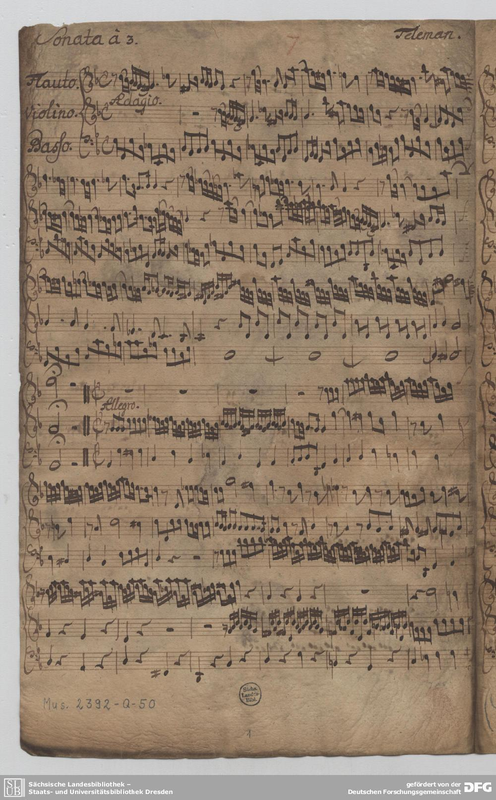 Sonata à 3.
7
Teleman.
Flauto.
Adagio.
Violino.
Basso.
Allegro.
Mus. 2392-Q-50
Sächsische Landesbibliothek –
Staats- und Universitätsbibliothek Dresden
gefördert von der
Deutschen Forschungsgemeinschaft
DFG